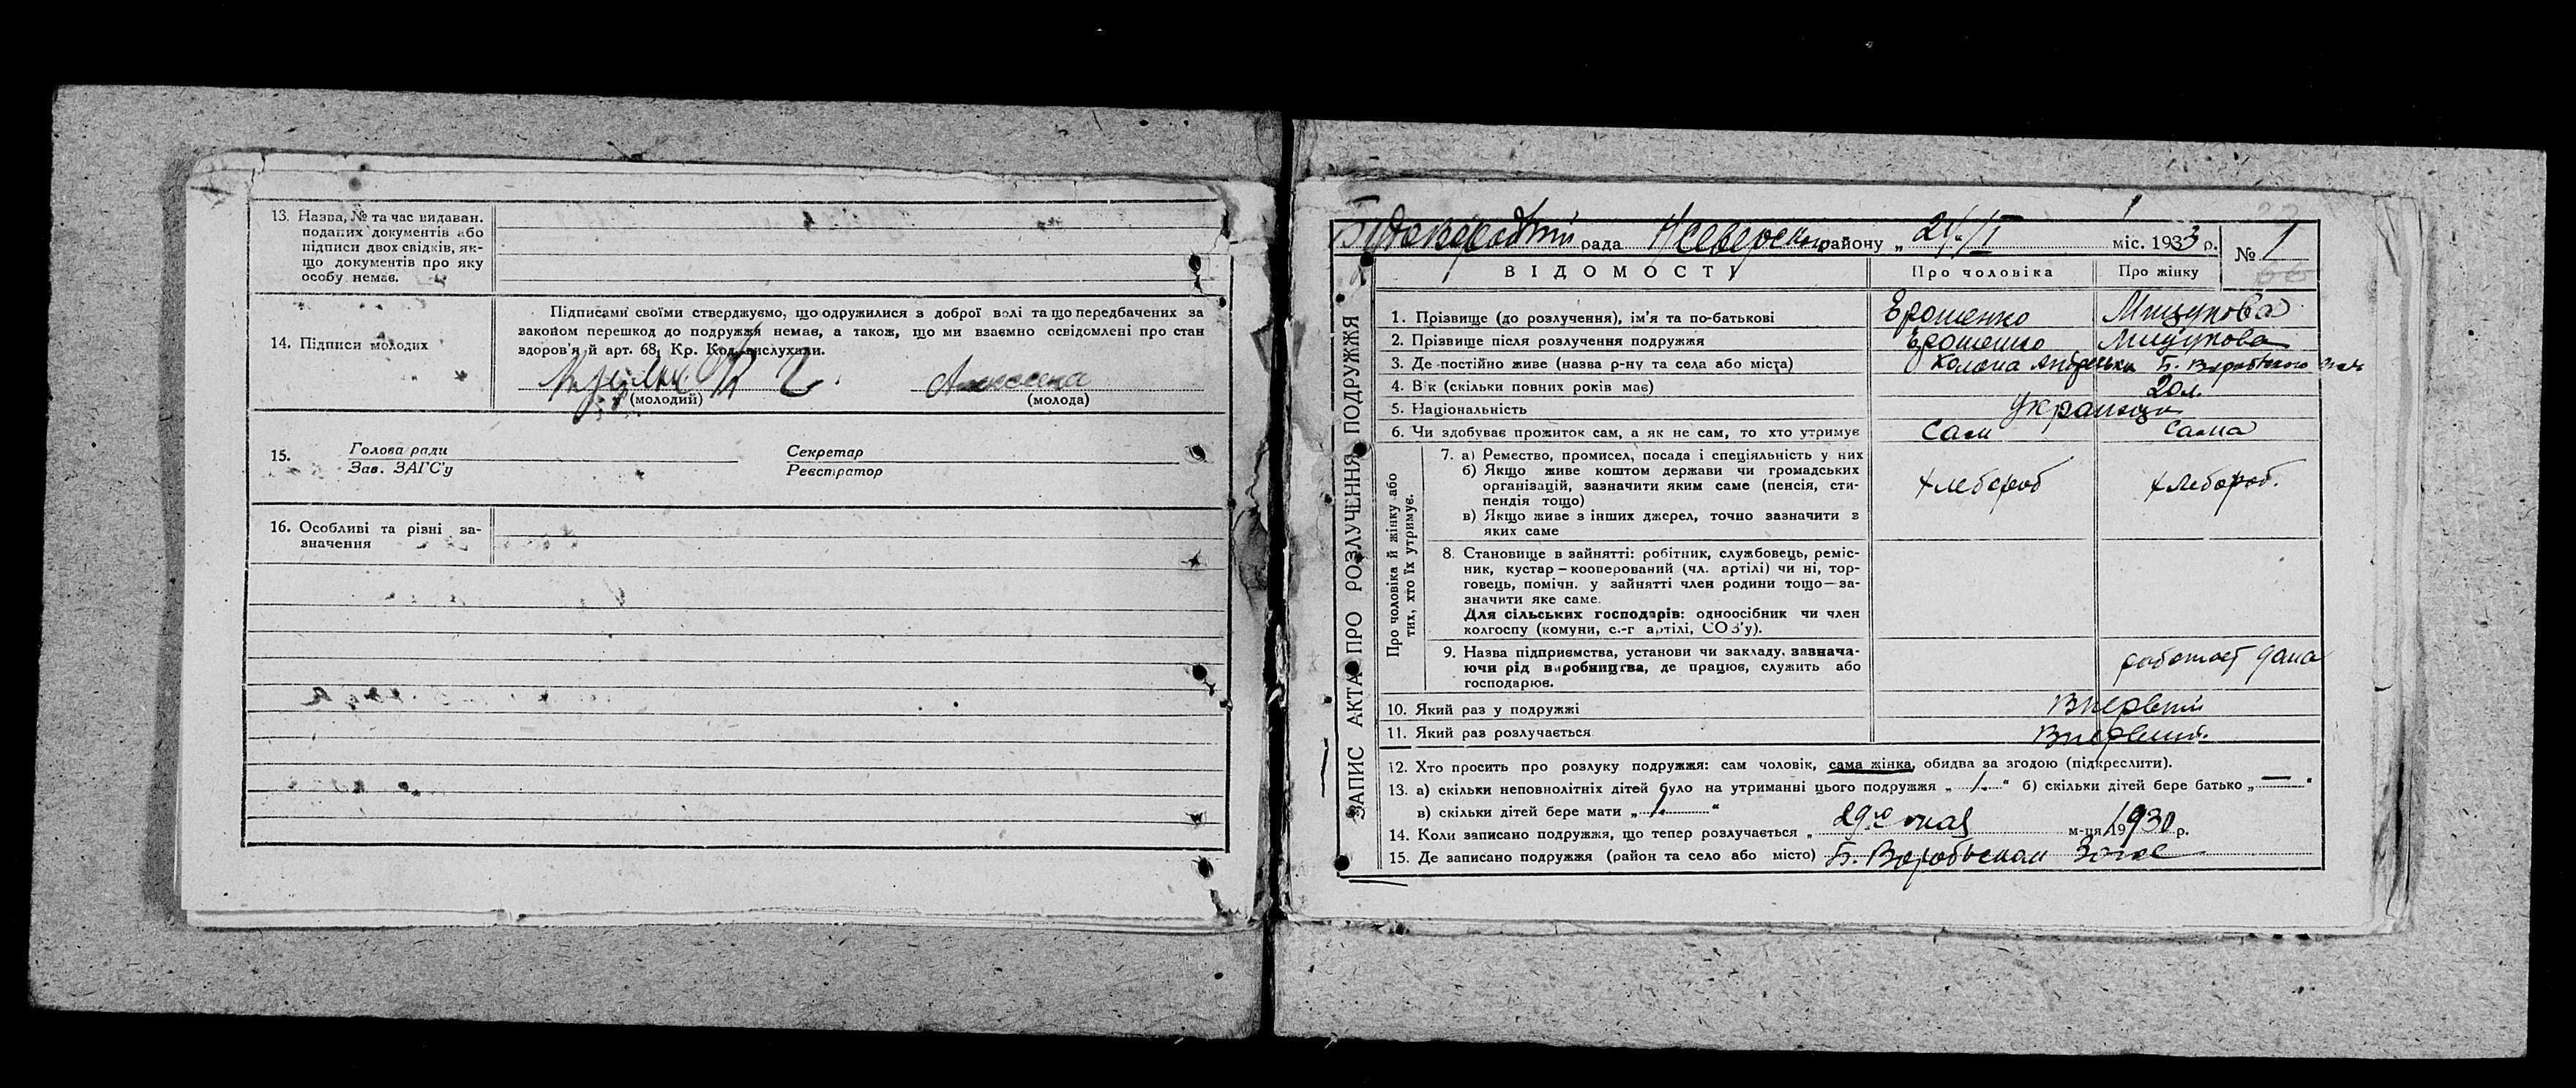 13. Назва, № та час видаван.
поданих документів або
підписи двох свідків, як-
що документів про яку
особу немає.
14. Підписи молодих
Підписами своїми стверджуємо, що одружилися з доброї волі та що передбачених за
законом перешкод до подружжя немає, а також, що ми взаємно освідомлені про стан
здоров'я й арт. 68, Кр. Код. вислухали.
(молодий)
(молода)
15.
Голова ради
Зав. ЗАГС'у
Секретар
Реєстратор
16. Особливі та різні за-
значення
рада
району „
міс. 1933 р.
№ 1
ЗАПИС АКТА ПРО РОЗЛУЧЕННЯ ПОДРУЖЖЯ
ВІДОМОСТІ
Про чоловіка
Про жінку
1. Прізвище (до розлучення), ім'я та по-батькові
Ерошенко
2. Прізвище після розлучення подружжя
Ерошенко
3. Де постійно живе (назва р-ну та села або міста)
4. Вік (скільки повних років має)
20 л.
5. Національність
украинци
6. Чи здобуває прожиток сам, а як не сам, то хто утримує
Сам
Сама
Про чоловіка й жінку або
тих, хто їх утримує.
7. а) Ремество, промисел, посада і спеціяльність у них
б) Якщо живе коштом держави чи громадських
організацій, зазначити яким саме (пенсія, сти-
пендія тощо)
в) Якщо живе з інших джерел, точно зазначити з
яких саме
хлебороб
хлебороб.
8. Становище в зайнятті: робітник, службовець, реміс-
ник, кустар – кооперований (чл. артілі) чи ні, тор-
говець, помічн. у зайнятті член родини тощо — за-
значити яке саме.
Для сільських господарів: одноосібник чи член
колгоспу (комуни, с.-г артілі, СОЗ'у).
9. Назва підприємства, установи чи закладу, зазнача-
ючи рід виробництва, де працює, служить або
господарює.
работает дома
10. Який раз у подружжі
Впервый
11. Який раз розлучається
Впервый.
12. Хто просить про розлуку подружжя: сам чоловік, сама жінка, обидва за згодою (підкреслити).
13. а) скільки неповнолітніх дітей було на утриманні цього подружжя „ 1. “ б) скільки дітей бере батько „ — “
в) скільки дітей бере мати „ 1. “
14. Коли записано подружжя, що тепер розлучається „ 29го мая м-ця 1930 р.
15. Де записано подружжя (район та село або місто) Б. Воробьевском Загсе